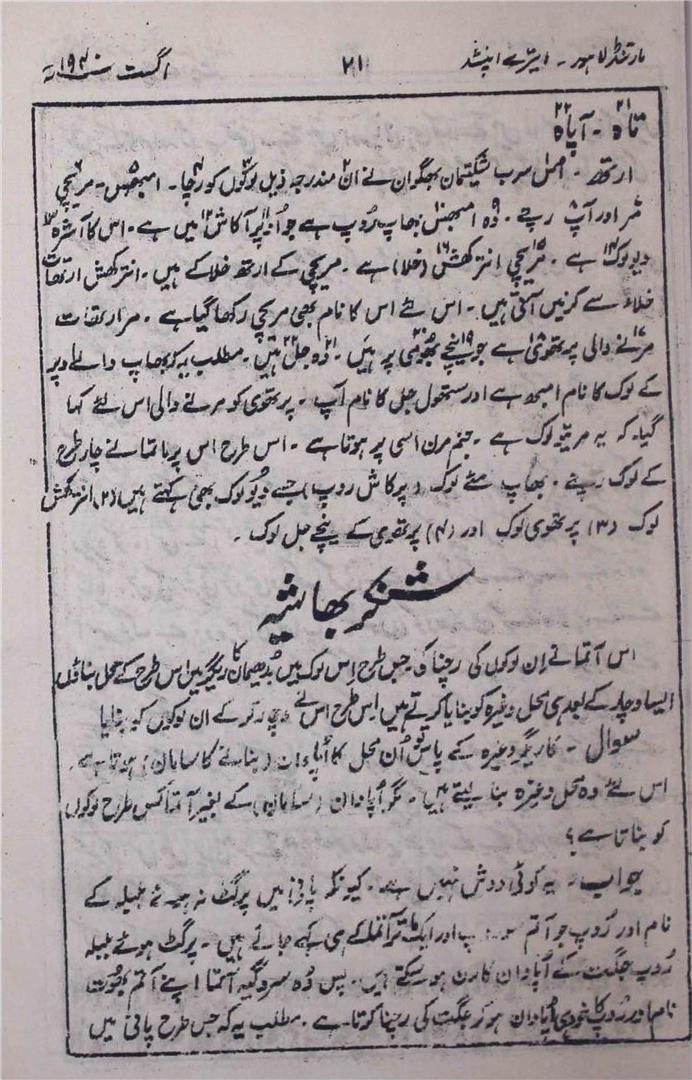 مارتنڈ لاہور - ایترے اپنشد ۲۱ اگست سنہ ۱۹۴۰ء
تاہ۲۱ - آپاہ۲۲
ارتھ - اس۱ سرب شکتیمان بھگوان نے ان۲ مندرجہ ذیل لوکوں۳ کو رچا۴۔ امبھس۵ - مریچی۶
مر۷ اور آپ۸ رچے۔ وہ۹ امبھس۱۰ بھاپ رُوپ ہے جو اُوپر۱۱ آکاش۱۲ میں ہے۔ اس کا آشرہ۱۳
دیو لوک۱۴ ہے۔ مریچی۱۵ انترکھش۱۶ (خلا) ہے۔ مریچی کے ارتھ خلا کے ہیں۔ انترکھش ارتھات
خلاء سے کرنیں آتی ہیں۔ اس لئے اس کا نام بھی مریچی رکھا گیا ہے۔ مر ارتھات
مرنے۱۷ والی پرتھوی۱۸ ہے جو۱۹ نیچے بھومی۲۰ پر ہیں۔ وہ۲۱ جل۲۲ ہیں۔ مطلب یہ کہ بھاپ والے اوپر
کے لوک کا نام امبھ ہے اور ستھول جل کا نام آپ۔ پرتھوی کو مرنے والی اس لئے کہا
گیا۔ کہ یہ مریتیو لوک ہے۔ جنم مرن اسی پر ہوتا ہے۔ اس طرح اس پرماتما نے چار طرح
کے لوک رچے۔ بھاپ مئے لوک (پرکاش روپ) جسے دیو لوک بھی کہتے ہیں (۲) انترکھش
لوک (۳) پرتھوی لوک اور (۴) پرتھوی کے نیچے جل لوک۔
شنکر بھاشیہ
اس آتما نے اِن لوکوں کی رچنا کی۔ جس طرح اِس لوک میں بُدھیمان کاریگر میں اس طرح کے محل بناؤں
ایسا وچار کے بعد ہی محل وغیرہ کو بنایا کرتے ہیں اِس طرح اس نے وچار کر کے ان لوکوں کو بنایا
سوال - کاریگر وغیرہ کے پاس اُن محل کا اُپادان (بنانے کا سامان) ہوتا ہے۔
اس لئے وہ محل وغیرہ بنا لیتے ہیں۔ مگر اُپادان (سامان) کے بغیر آتما کس طرح لوکوں
کو بناتا ہے؟
جواب - یہ کوئی دوش نہیں ہے۔ کیونکہ پانی میں پرگٹ نہ ہوئے بلبلہ کے
نام اور رُوپ جو آتم اور ایک ماتر آتما کے ہی کہے جاتے ہیں۔ پرگٹ ہوئے بلبلہ
رُوپ جگت کے اُپادان کارن ہو سکتے ہیں۔ پس وُہ سروگیہ آتما اپنے آتم بھوت
نام اور رُوپ کا خود ہی اُپادان ہو کر جگت کی رچنا کرتا ہے۔ مطلب یہ کہ جس طرح پانی میں